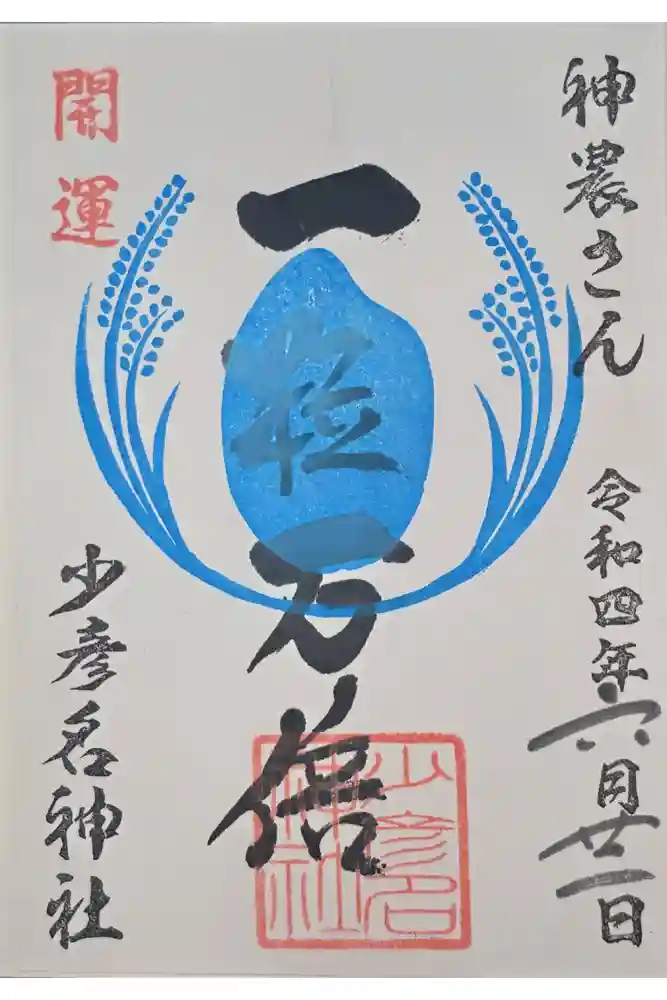 神農さん
令和四年六月廿一日
一粒万倍
少彦名
神社
開運
少彦名神社